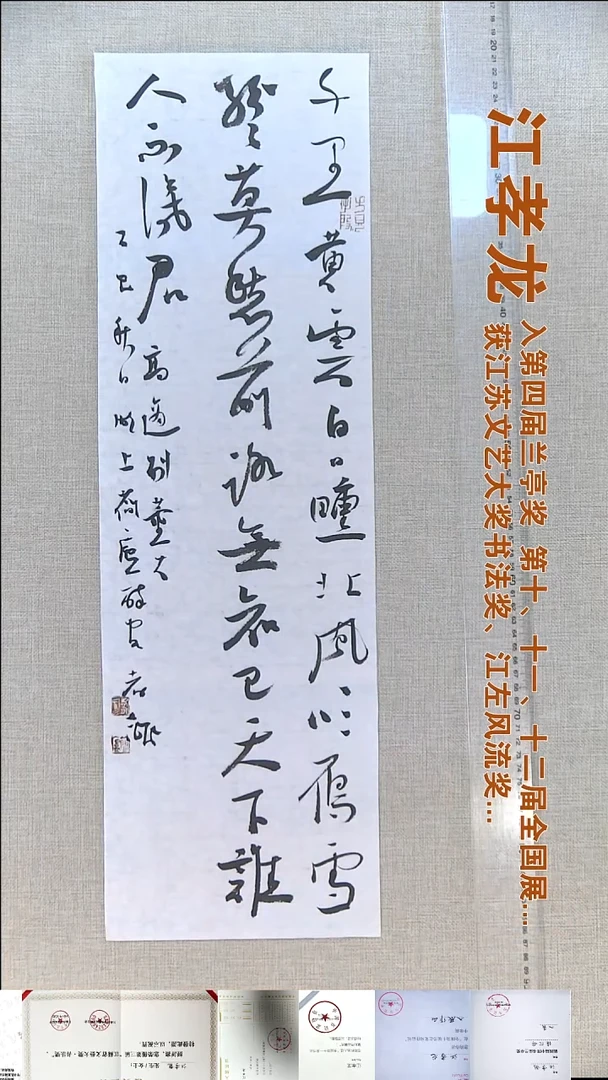 江孝龙
入第四届兰亭奖 第十、十一、十二届全国展...
获江苏文艺大奖书法奖、江左风流奖...
千里黄雲白日曛北風吹雁雪
紛紛莫愁前路無知己天下誰
人不識君 高適別董大
乙巳秋日 上 孝龍